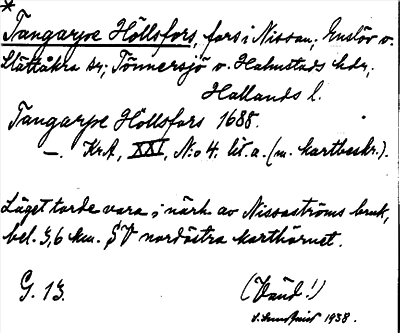 *
Tangarpe Höllsfors, fors i Nissan; Enslöv o.
Slättåkra sr; Tönnersjö o. Halmstads hdr;
Hallands l.
Tangarpe Höllsfors 1688.
—. KrA, XXI, N:o 4. lit. a. (m. kartbeskr.).
Läget torde vara i närh. av Nissaströms bruk,
bel. 3,6 km. SV nordöstra karthörnet.
G. 13. (Vänd!)
1938.